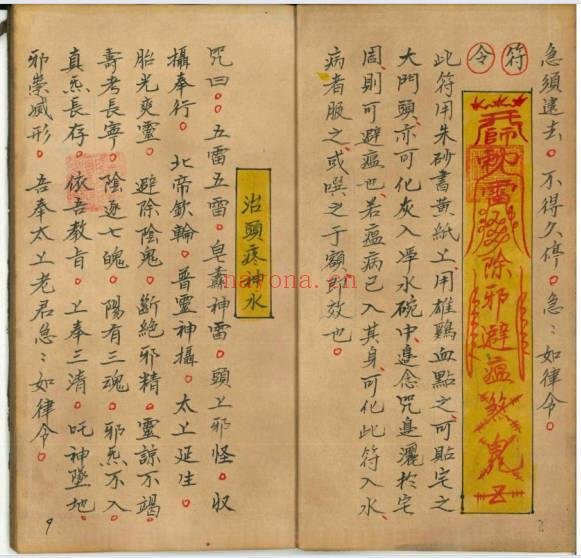 急須遠去。不得久停。急〻如律令。
符令
除邪避瘟煞鬼
此符用朱砂書黃紙上、用雄雞血點之、可貼宅之
大門頭、亦可化灰入淨水碗中、邊念咒邊灑於宅
周、則可避瘟也、若瘟病已入其身、可化此符入水、
病者服之、或噀之于額、有效也。
治頭疼神水
咒曰。五雷五雷。皂纛神雷。頭上邪怪。収
攝奉行。北帝欽輪。普靈神攝。太上延生。
胎光爽靈。避除陰鬼。斷絕邪精。靈諒不竭
壽考長寧。陰逐七魄。陽有三魂。邪炁不入
真炁長存。依吾教旨。上奉三清。吒神墜地。
邪祟滅形。吾奉太上老君急〻如律令。
9
nayona.cn